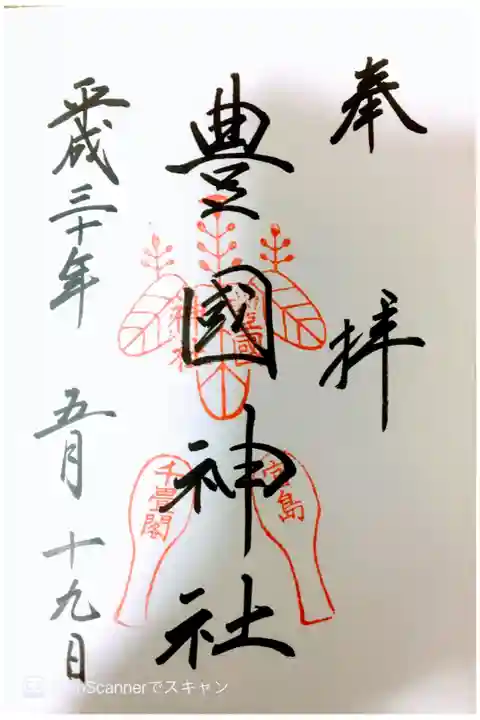 奉拝
豊國神社
平成三十年 五月 十九日
豊國
神社
宮島
千畳閣
Scannerでスキャン